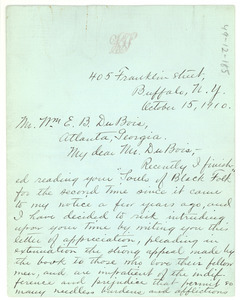 49-12-185
405 Franklin Street,
Buffalo, N.Y.
October 15, 1910.
Mr. Wm E. B. DuBois,
Atlanta, Georgia.
My dear Mr. DuBois,-
Recently I finish-
ed reading your "Souls of Black Folk"
for the second time since it came
to my notice a few years ago, and
I have decided to risk intruding
upon your time by writing you this
letter of appreciation, pleading in
extenuation the strong appeal made by
the book to those who love their fellow
men, and are impatient of the indif-
ference and prejudice that permit so
many needless burdens and afflictions